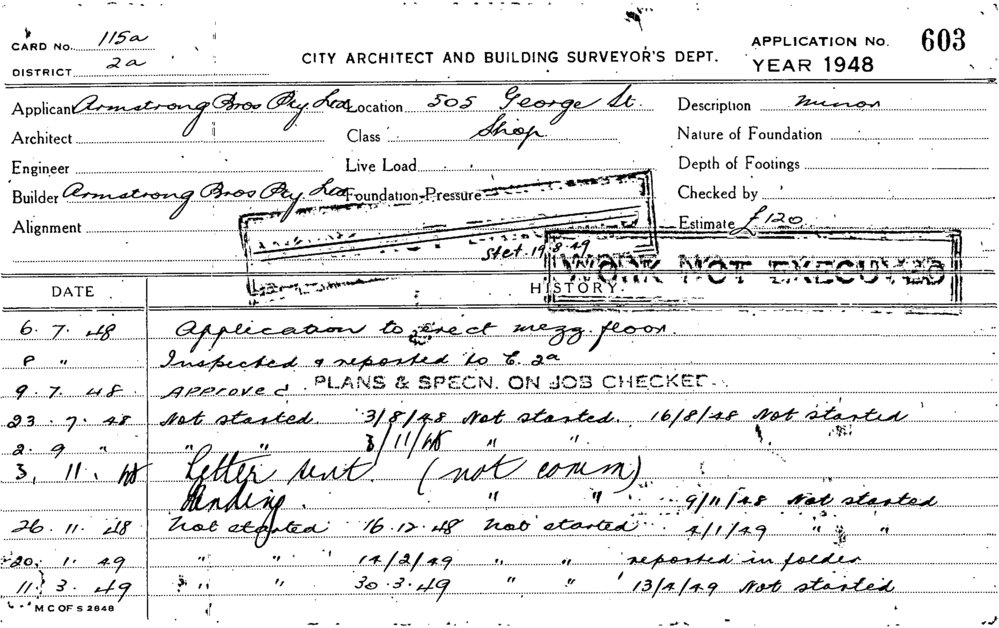 CARD No. 115a
DISTRICT 2a
CITY ARCHITECT AND BUILDING SURVEYOR'S DEPT.
APPLICATION No. 603
YEAR 1948
Applicant Armstrong Bros Pty Ltd Location 505 George St. Description minor
Architect Class Shop Nature of Foundation
Engineer Live Load Depth of Footings
Builder Armstrong Bros Pty Ltd Foundation Pressure Checked by
Alignment Estimate £120
Stet. 19.8.49
WORK NOT EXECUTED
DATE HISTORY
6. 7. 48 Application to erect mezz. floor.
8 " Inspected & reported to C. 2a
9. 7. 48 Approved PLANS & SPECN. ON JOB CHECKED
23. 7. 48 Not started 3/8/48 Not started. 16/8/48 Not started
2. 9 " " " 3/11/48 " "
3. 11. 48 Letter sent. (not comm)
Pending. " " 9/11/48 Not started
26. 11. 48 Not started 16.12.48 Not started 4/1/49 " "
20. 1. 49 " " 14/2/49 " " reported in folder
11. 3. 49 " " 30.3.49 " " 13/4/49 Not started
M C OF S 2848